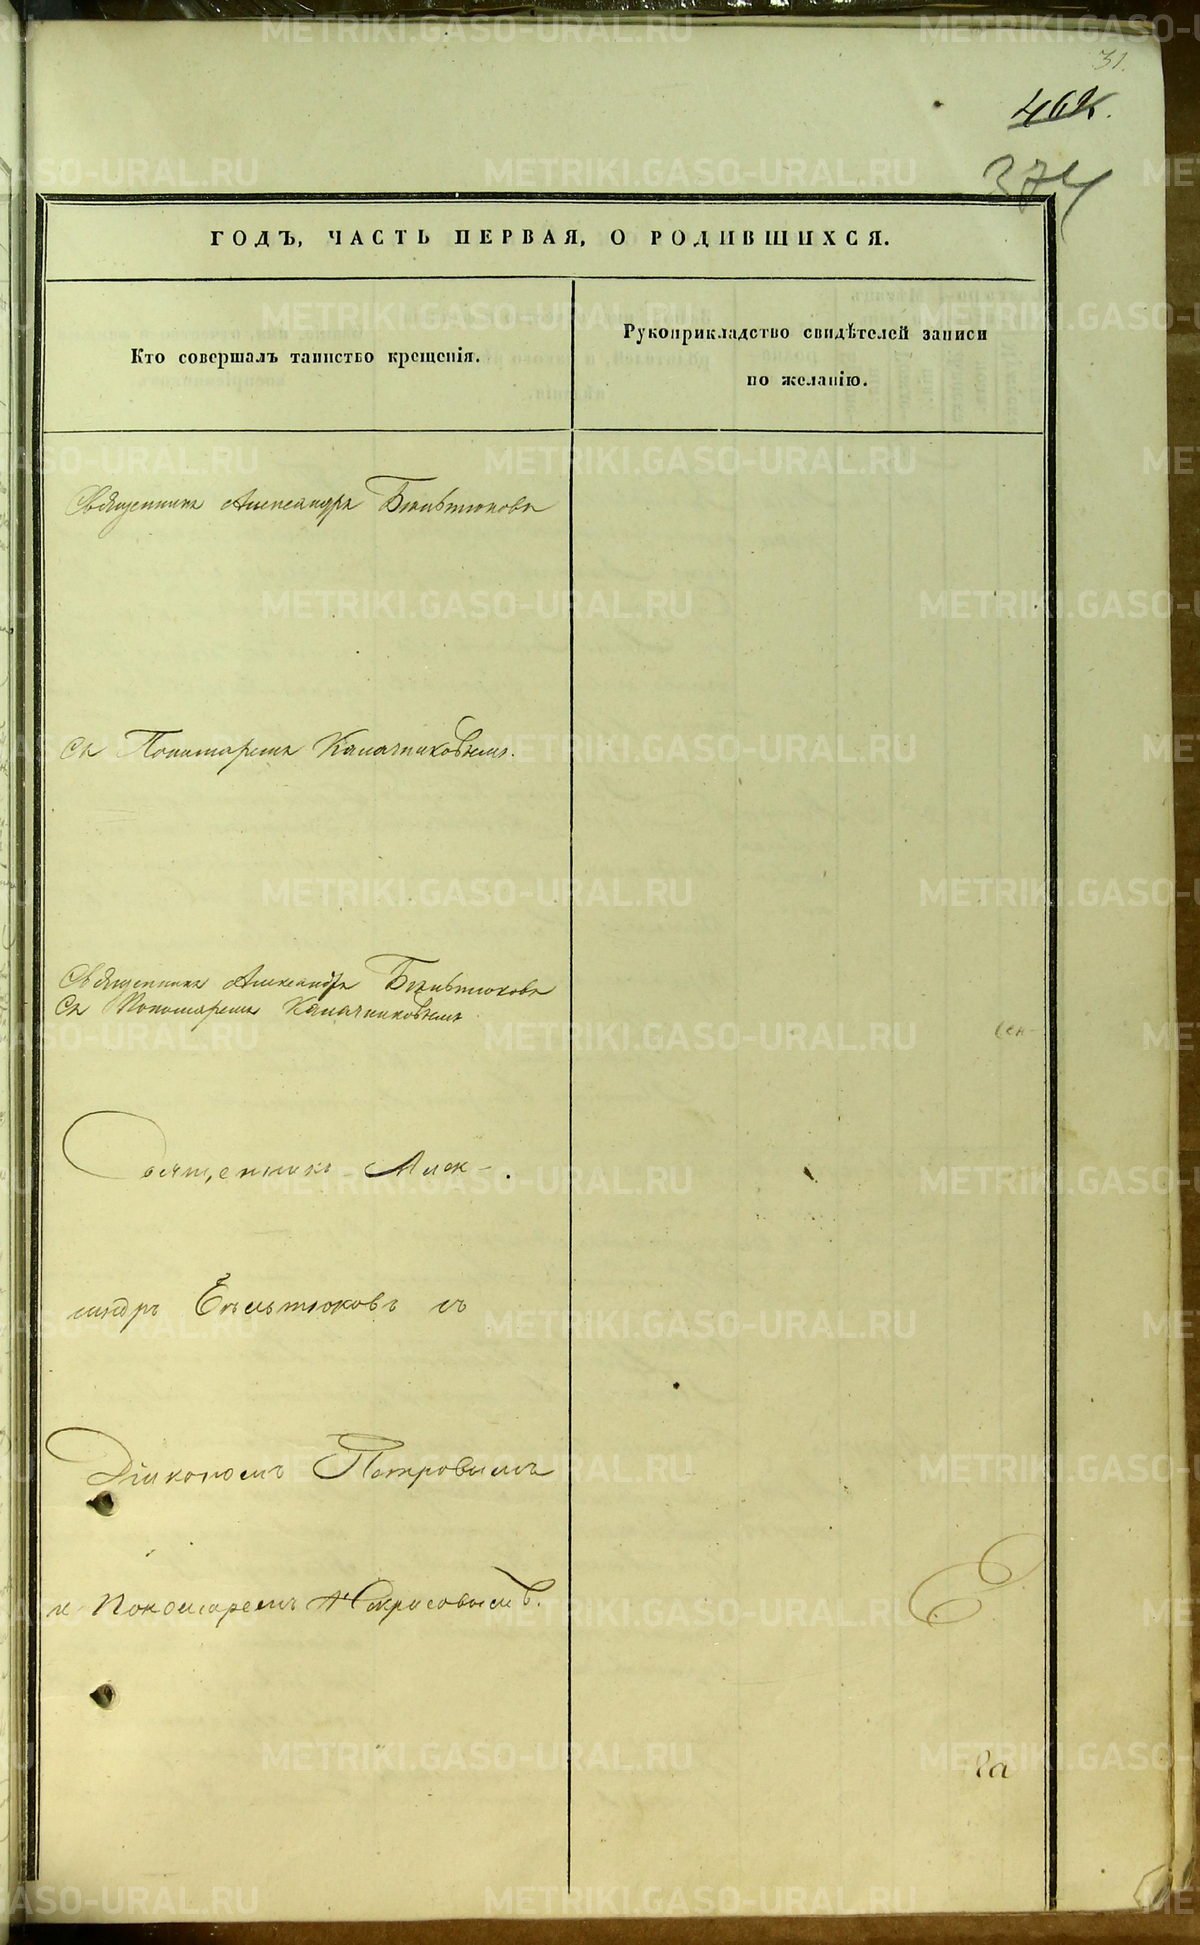 31.
462.
374
ГОДЪ, ЧАСТЬ ПЕРВАЯ, О РОДИВШИХСЯ.
Кто совершалъ таинство крещенія.
Рукоприкладство свидѣтелей записи
по желанію.
Священникъ Александръ Бѣльтюковъ
Съ Пономаремъ Калачниковымъ.
Священникъ Александръ Бѣльтюковъ
Съ Пономаремъ Калачниковымъ
Священникъ Алек-
сандръ Бѣльтюковъ съ
Діакономъ Петровымъ
и Пономаремъ
METRIKI.GASO-URAL.RU